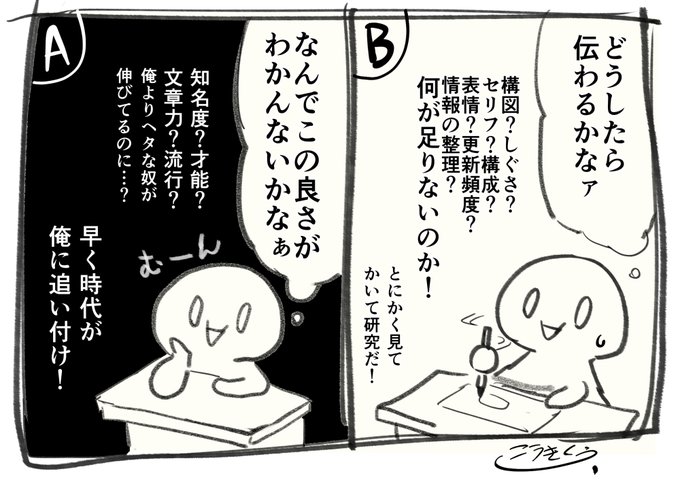 B
どうしたら
伝わるかなァ
構図？しぐさ？
セリフ？構成？
表情？更新頻度？
情報の整理？
何が足りないのか！
とにかく見て
かいて研究だ！
A
なんでこの良さが
わかんないかなぁ
知名度？才能？
文章力？流行？
俺よりヘタな奴が
伸びてるのに…？
むーん
早く時代が
俺に追い付け！